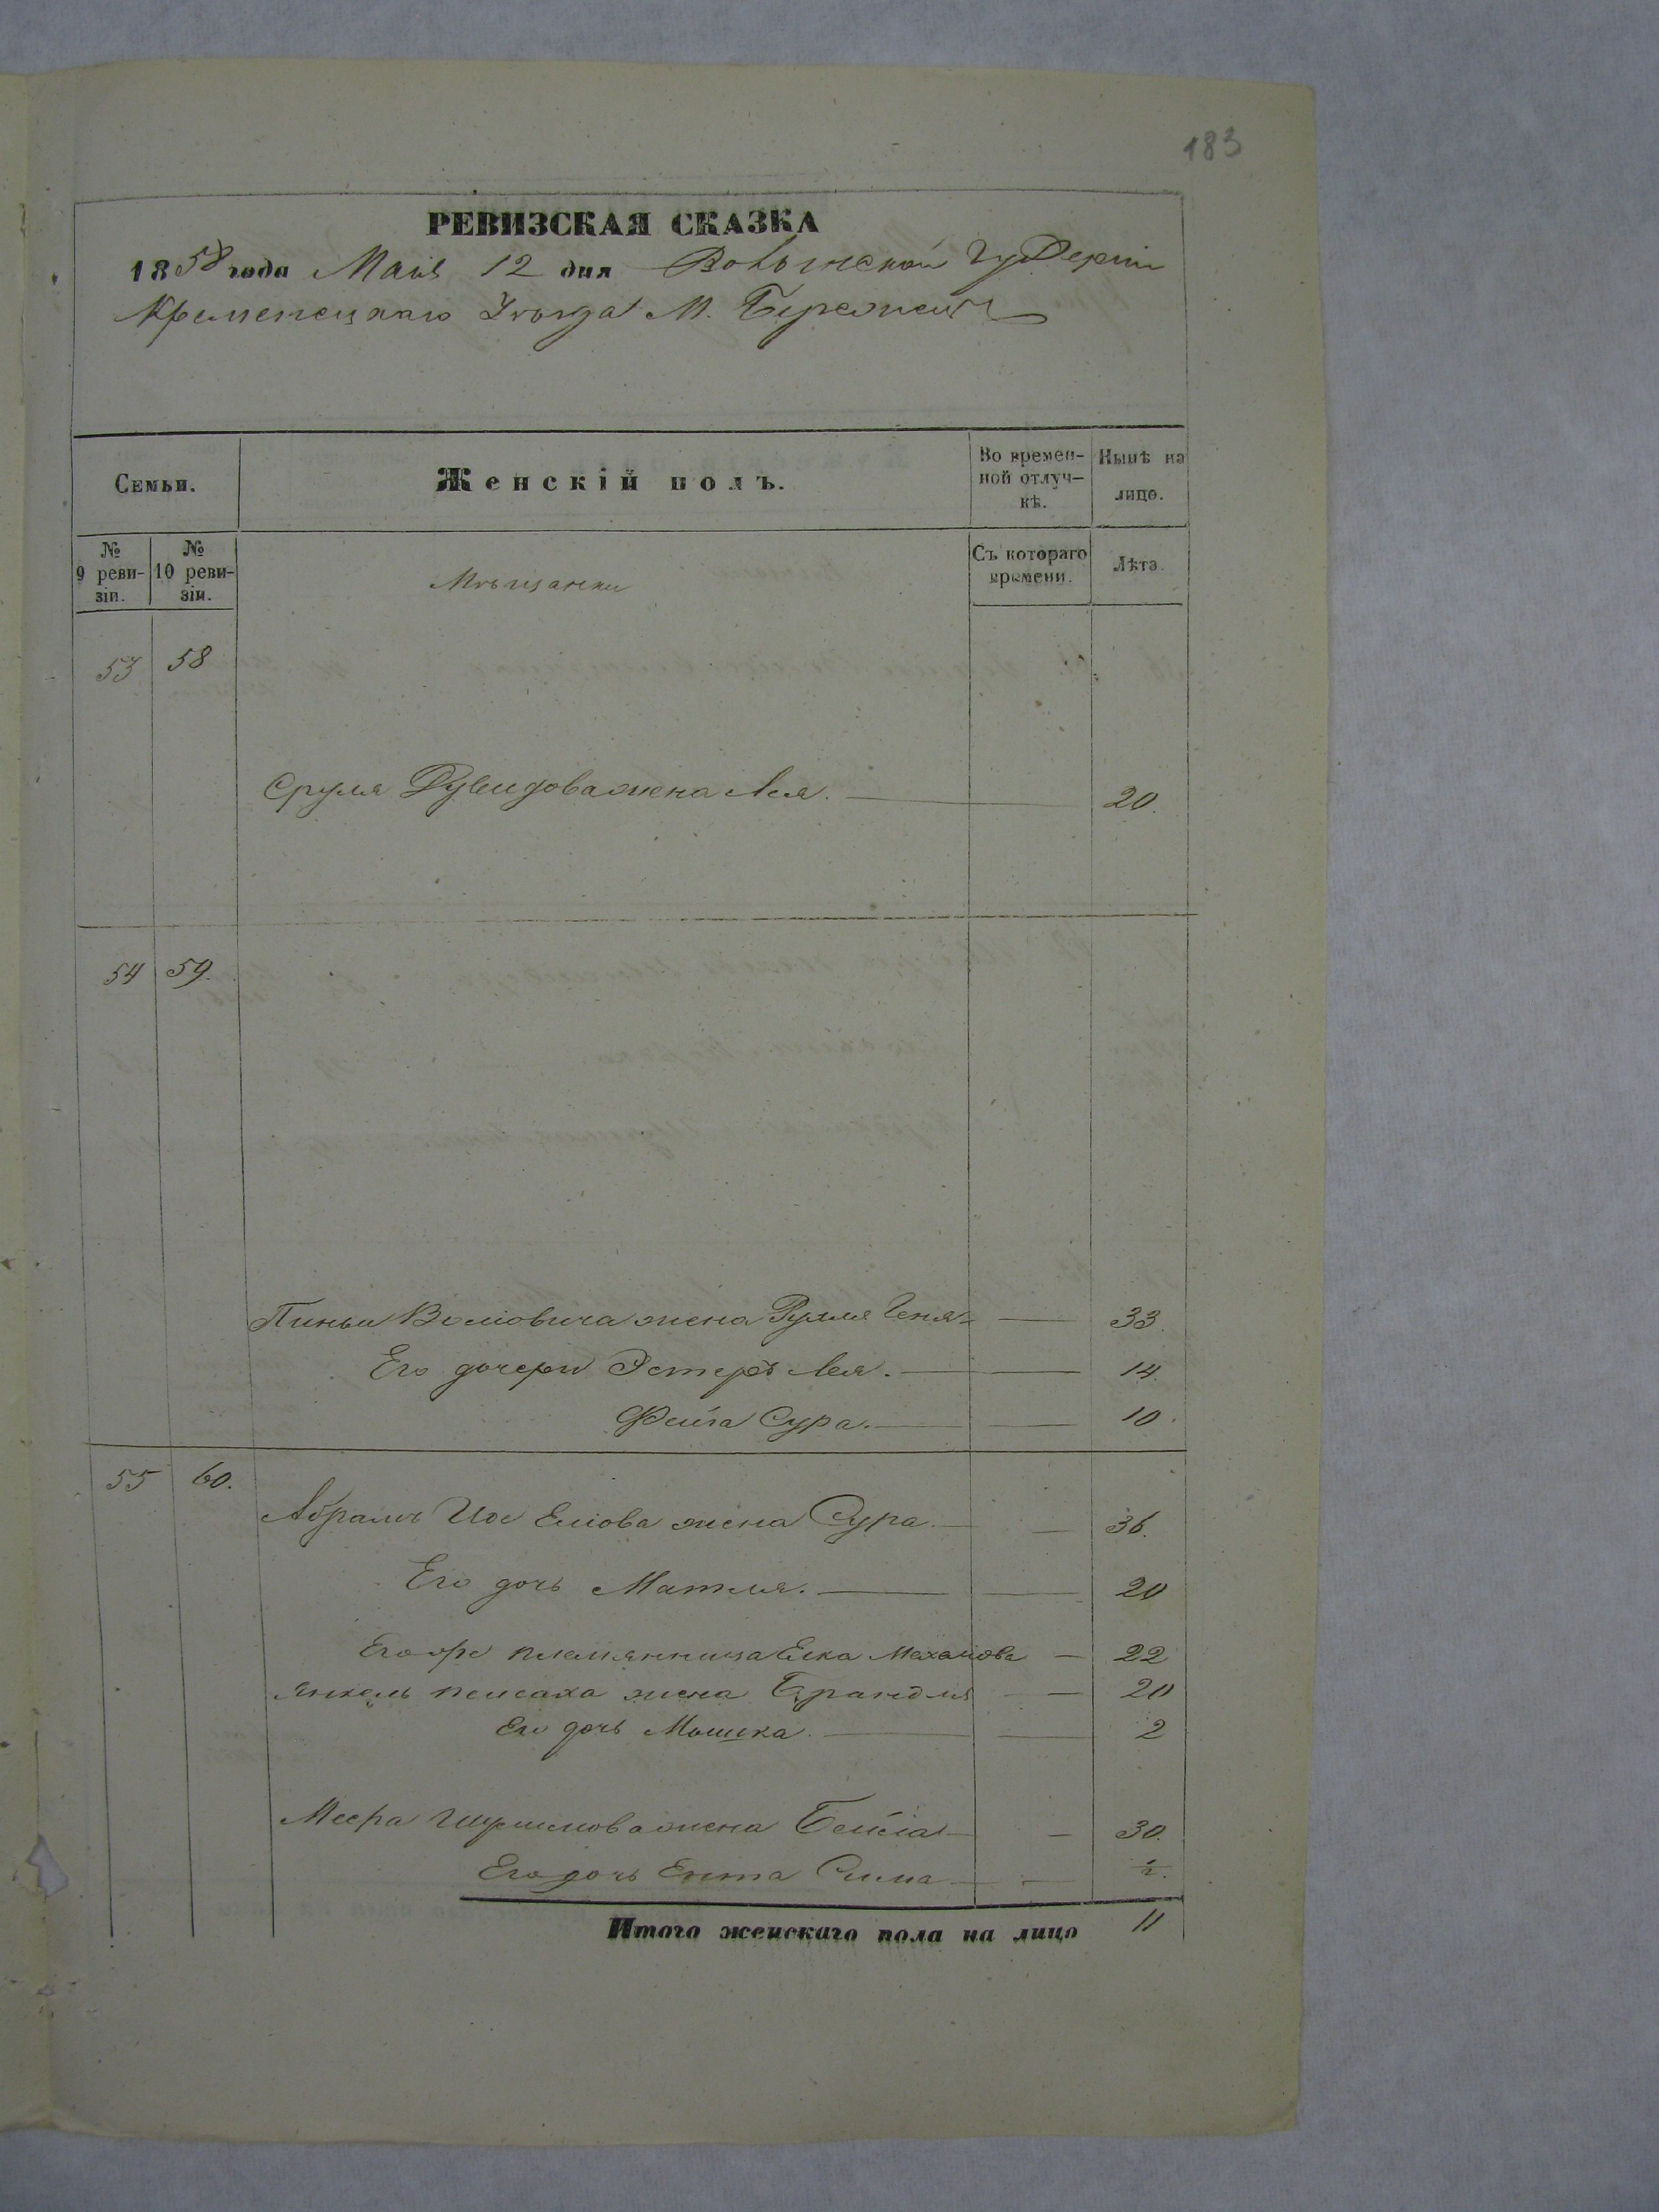 183
РЕВИЗСКАЯ СКАЗКА
1858 года Маія 12 дня Волынской Губерніи
Кременецкаго Уѣзда М. Бережецъ
Семьи.
Женскій полъ.
Во времен-
ной отлуч-
кѣ.
Нынѣ на
лицо.
№
9 реви-
зіи.
№
10 реви-
зіи.
Мѣщанки
Съ котораго
времени.
Лѣта.
53 58
Сруля Дувидова жена Лея. 20.
54 59.
Пиньи Волiовича жена Рухля Геня 33.
Его дочери Эстеръ Лея. 14.
Фейга Сура. 10.
55 60.
Абрамъ Иос Елiова жена Сура. 36.
Его дочь Матля. 20
Его же племянница Елка 22
Янкель Пейсаха жена Брандля 20
Его дочь Мошка. 2
Меера жена Бейла 30.
Его дочь Ента Сима
Итого женскаго пола на лицо 11